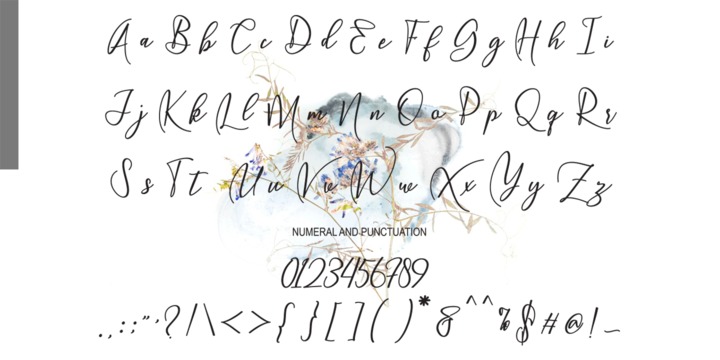 A a B b C c D d E e F f G g H h I i
J j K k L l M m N n O o P p Q q R r
S s T t U u V v W w X x Y y Z z
NUMERAL AND PUNCTUATION
0123456789
. , : ; " ' ? / | \ < > { } [ ] ( ) * & ^ ^ % $ # @ ! _